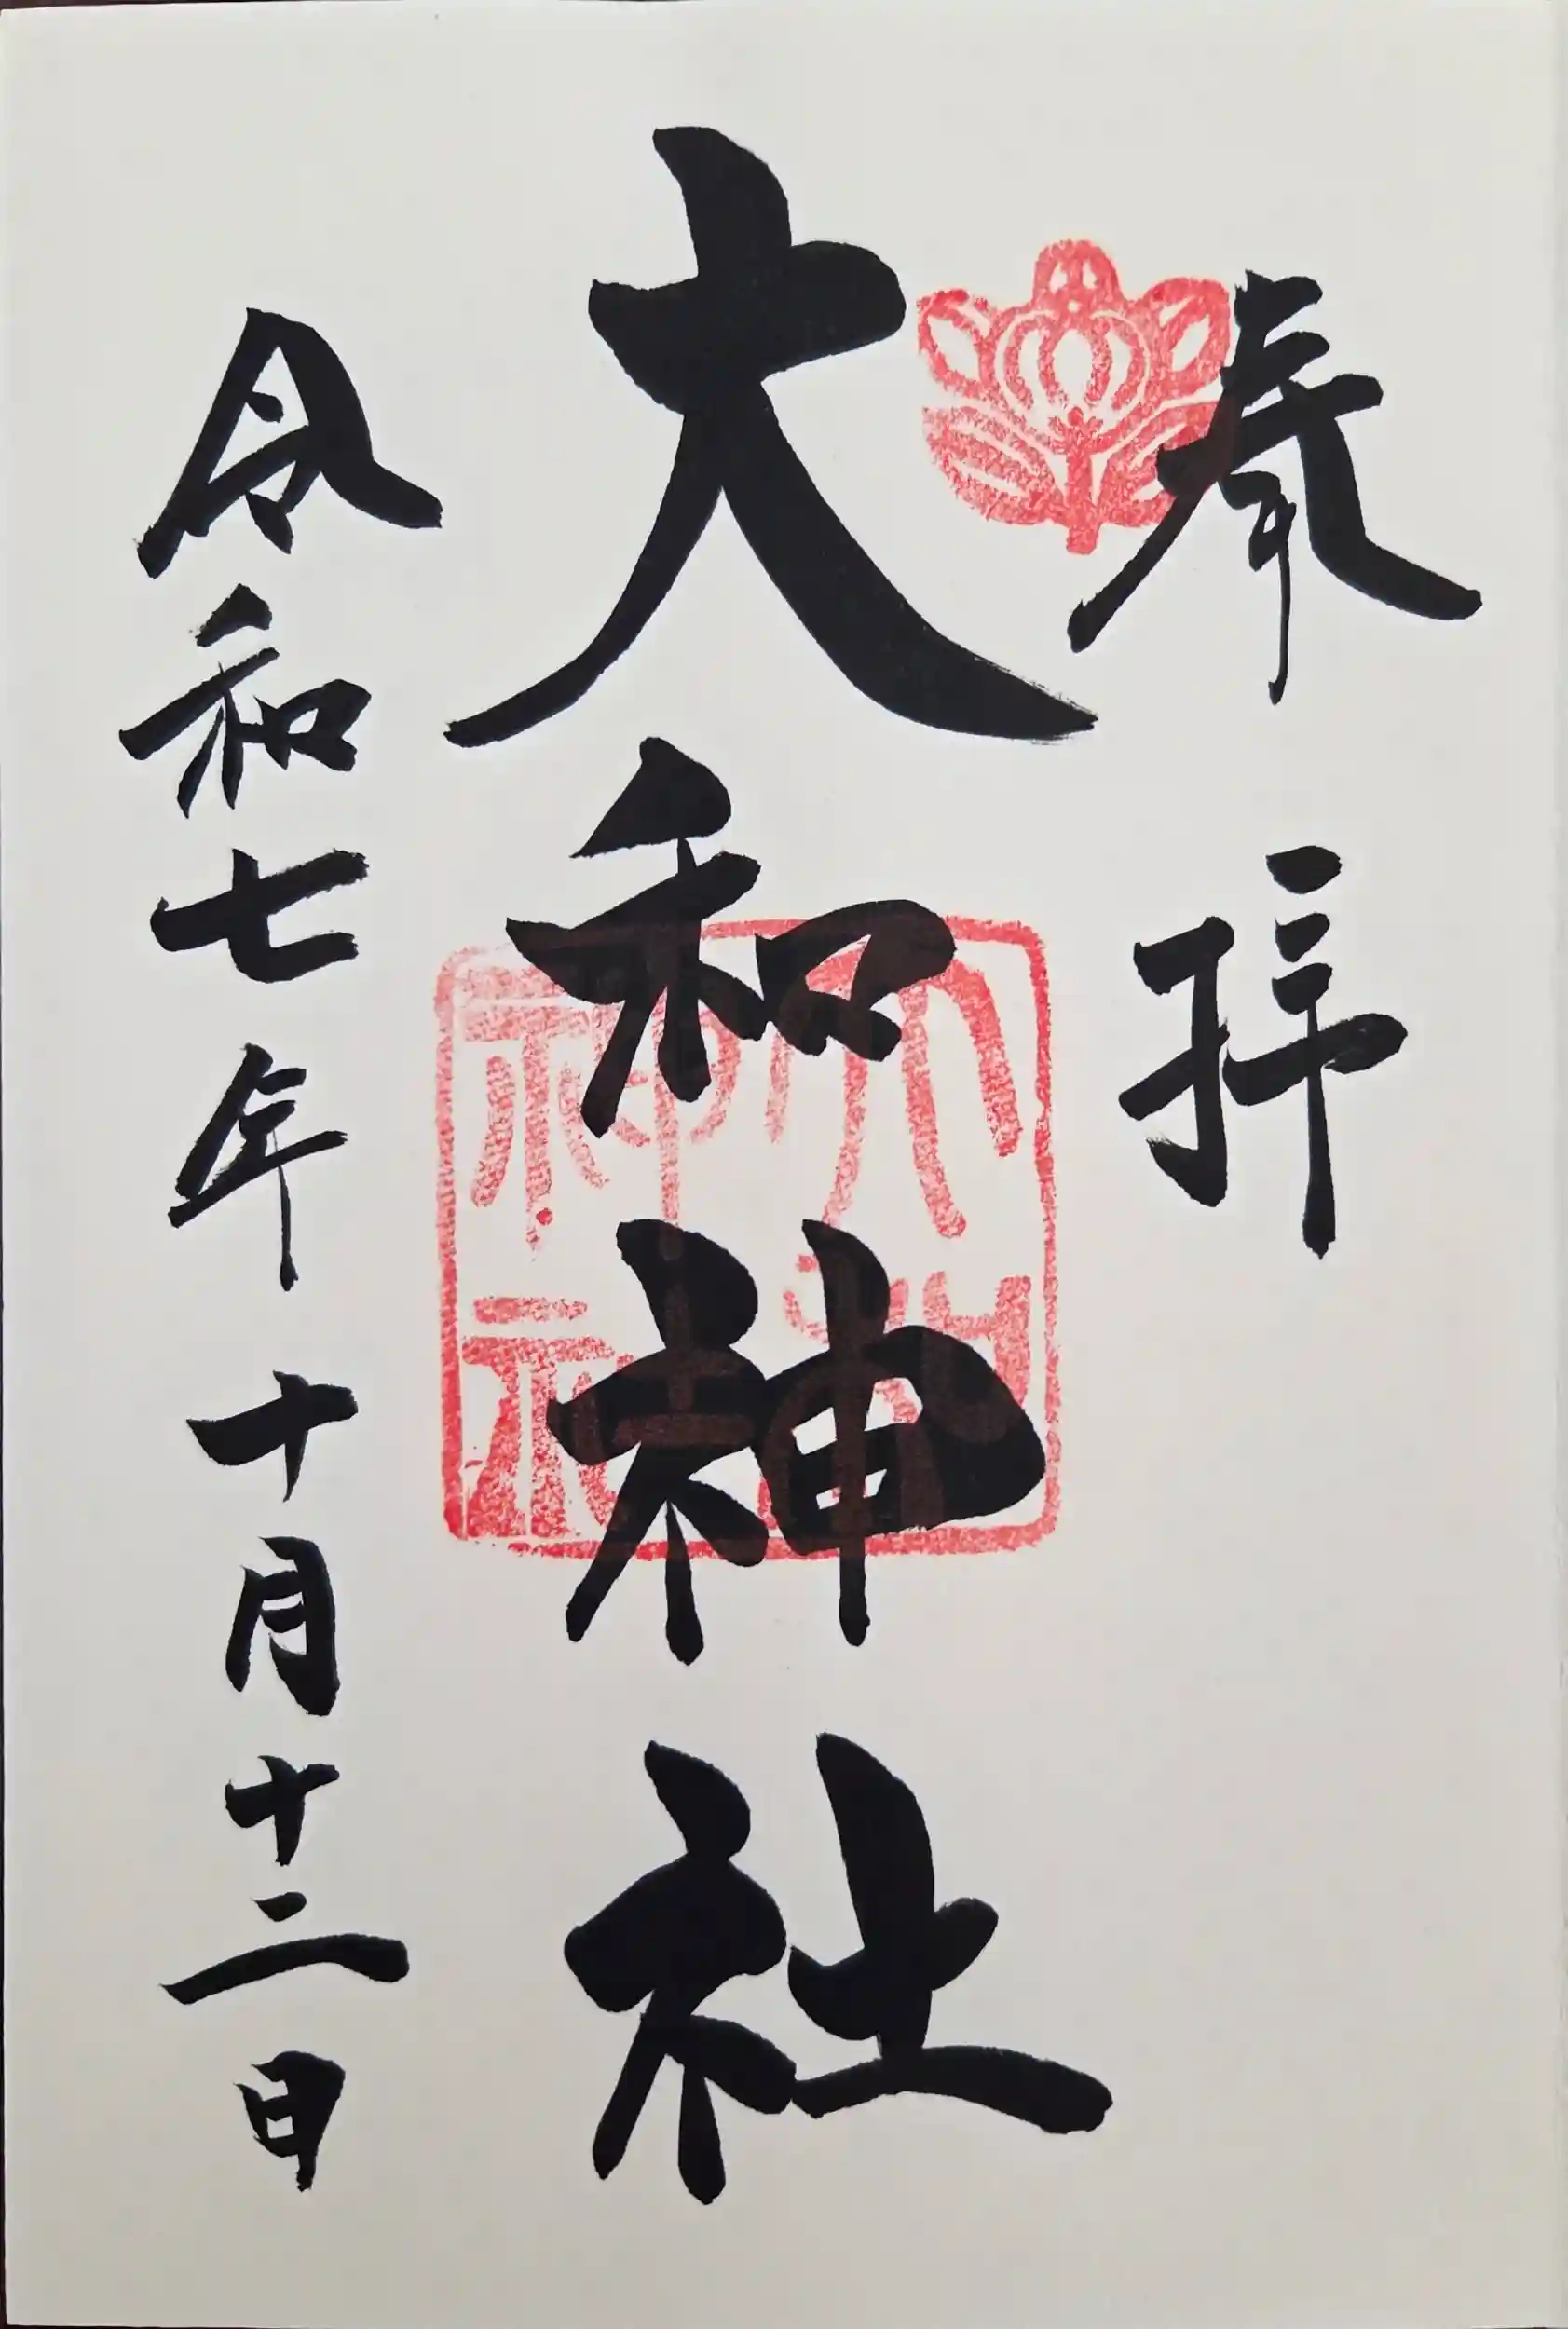 奉拝
大和神社
令和七年十月十二日
大和神社